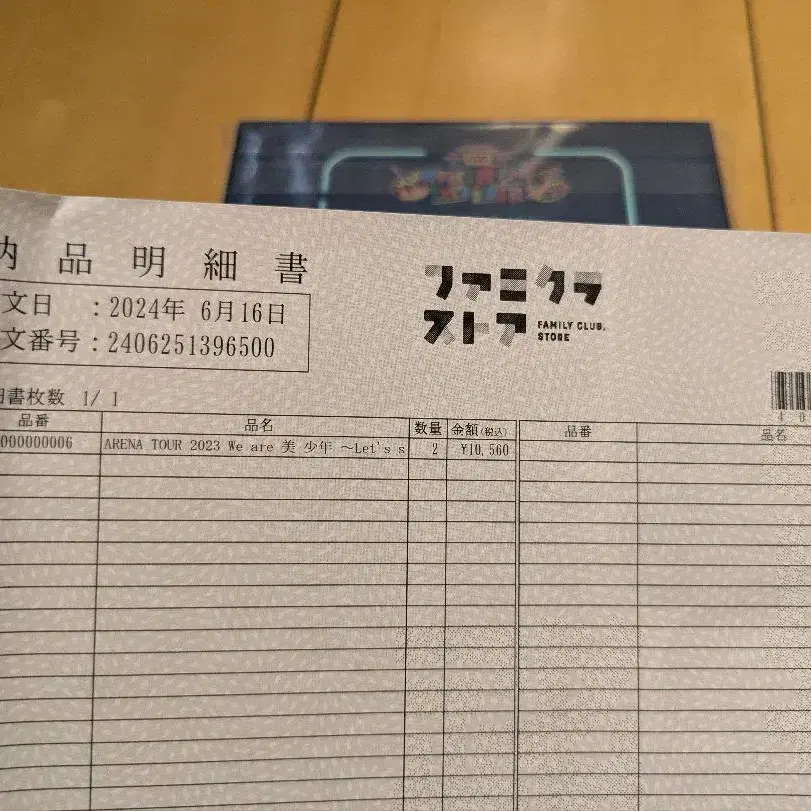 納品明細書
文日 ：2024年 6月16日
文番号：2406251396500
ファミクラ
ストア FAMILY CLUB. STORE
書枚数 1/ 1
品番 品名 数量 金額(税込) 品番 品名
000000006 ARENA TOUR 2023 We are 美 少年 ～Let's s 2 ¥10,560